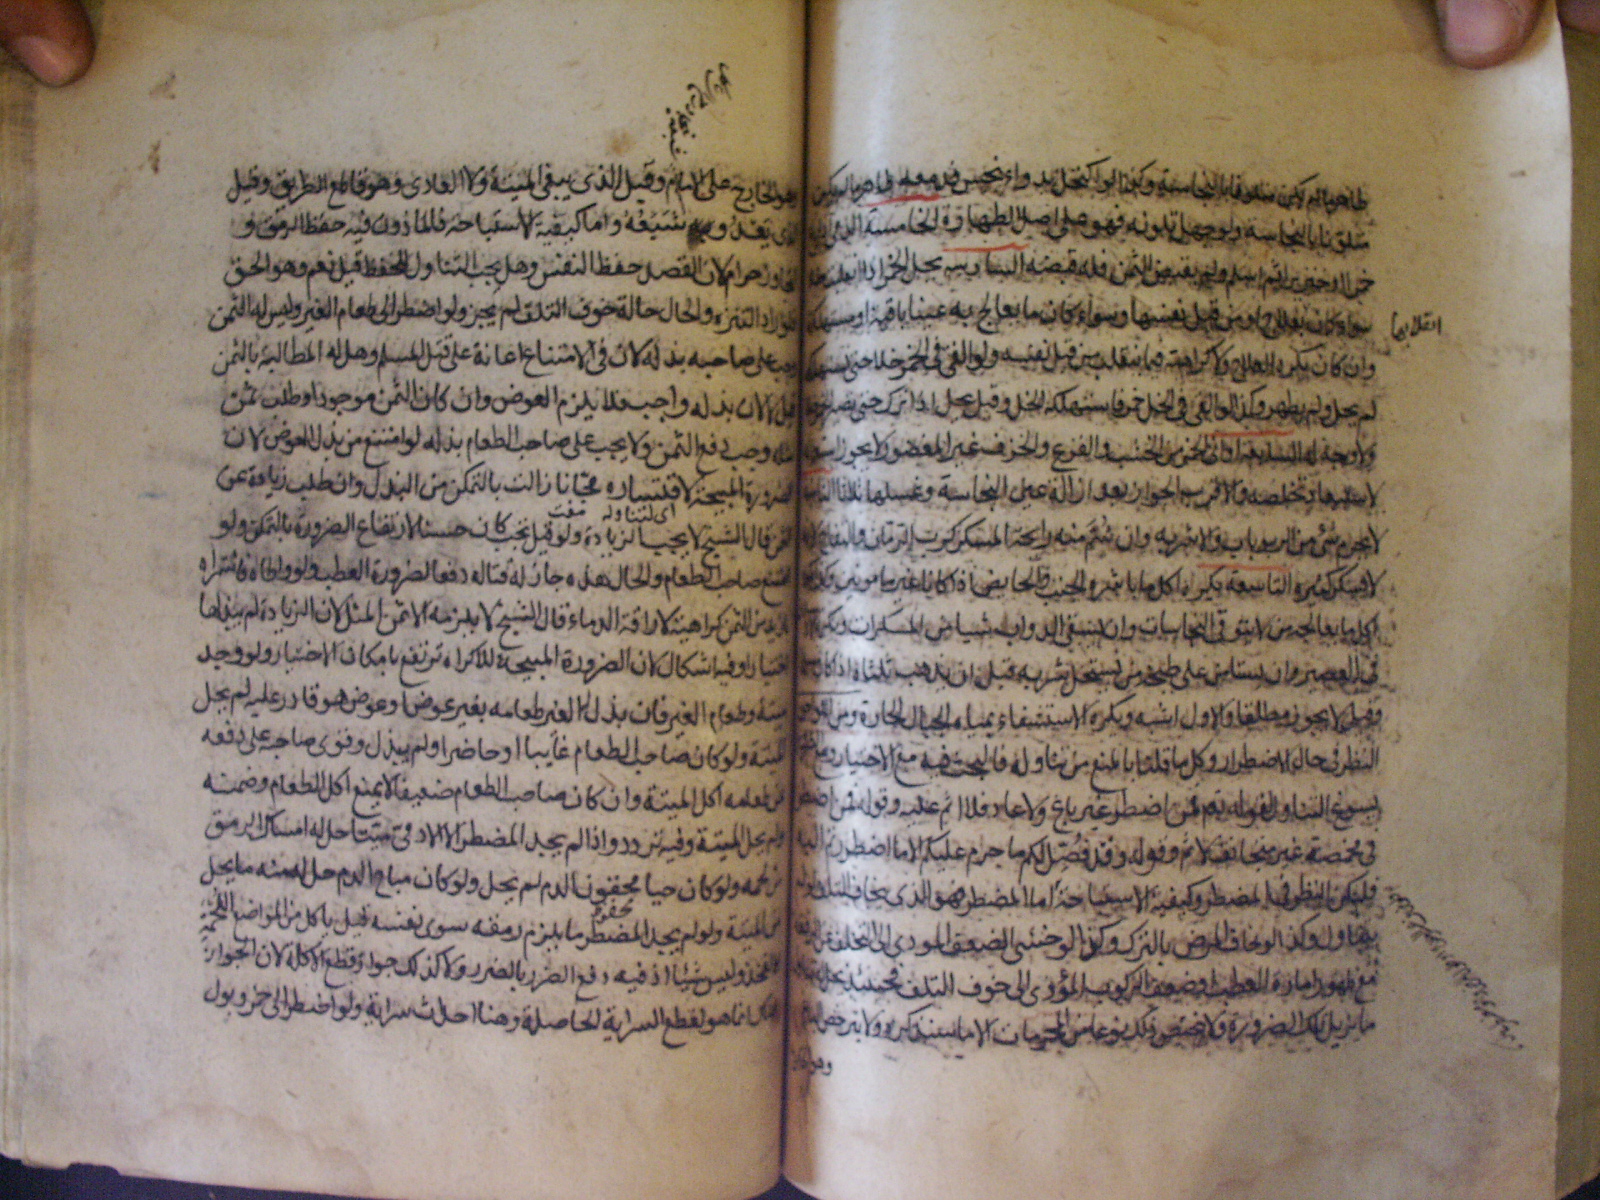 طاهر ما لم يكن ملاقيا بالنجاسة وكذا لو اكتحل بدواء نجس فدمعه طاهر ما لم يتلون
متلونا بالنجاسة ولو جهل تلونه فهو على اصل الطهارة الخامسة الذمي اذا باع
خمرا او خنزيرا ثم اسلم ولم يقبض الثمن فله قبضه السادسة يحل الخمر اذا انقلبت خلا
سواء كان بعلاج او من قبل نفسها وسواء كان ما يعالج به عينا باقية او مستهلكة
انقلابها
وان كان يكره العلاج ولا كراهية فيما ينقلب من قبل نفسه ولو القي في الخمر خل حتى تستهلكه
لم يحل ولم يطهر وكذا لو القي في الخل خمر فاستهلكه الخل وقيل يحل اذا ترك حتى يصير
ولا وجه له السابعة اواني الخمر من الخشب والقرع والخزف غير المغضور لا يجوز استعماله
لاستبعاد تخلصه والاقرب الجواز بعد ازالة عين النجاسة وغسلها ثلاثا الثامنة
لا يحرم شئ من الربوبات والاشربه وان شم منه رائحة المسكر كرب الرمان والتفاح لانه
لا يسكر كثيره التاسعة يكره اكل ما باشره الجنب والحائض اذا كانا غير مامونين وكذا
اكل ما يعالجه من لا يتوقى النجاسات وان يسقى الدواب شيئا من المسكرات ويكره
في العصير وان يستامن على طبخه من يستحل شربه قبل ان يذهب ثلثاه اذا كان مسلما
وقيل لا يجوز مطلقا والاول اشبه ويكره الاستشفاء بمياه الجبال الحارة ومن اللواحق
النظر في حال الاضطرار وكل ما قلنا بالمنع من تناوله فالبحث فيه مع الاختيار ومع الضرورة
يسوغ التناول لقوله تعم فمن اضطر غير باغ ولا عاد فلا اثم عليه وقوله فمن اضطر
في مخمصة غير متجانف لاثم وقوله وقد فصل لكم ما حرم عليكم الا ما اضطررتم اليه
فليكن النظر في المضطر وكيفية الاستباحة اما المضطر فهو الذي يخاف التلف لو لم
يتناول وكذا لو خاف المرض بالترك وكذا لو خشي الضعف المودي الى التخلف عن الرفقة
مع ظهور امارة العطب او ضعف الركوب المؤدي الى خوف التلف فحينئذ يحل له تناول
ما يزيل تلك الضرورة ولا يختص ذلك نوعا من المحرمات الا ما سنذكره ولا يترخص الباغي
وهو الخارج
وهو الخارج على الامام وقيل الذي يبغي الميتة ولا العادي وهو قاطع الطريق وقيل
الذي يعدو شبعه واما كيفية الاستباحة فالماذون فيه حفظ الرمق و
التجاوز حرام لان القصد حفظ النفس وهل يجب التناول للحفظ قيل نعم وهو الحق
فلو اراد التنزه والحال حالة خوف التلف لم يجز ولو اضطر الى طعام الغير وليس له الثمن
وجب على صاحبه بذله لان في الامتناع اعانة على قتل المسلم وهل له المطالبة بالثمن
قيل لا لان بذله واجب فلا يلزم العوض وان كان الثمن موجودا وطلب ثمن
مثله وجب دفع الثمن ولا يجب على صاحب الطعام بذله لو امتنع من بذل العوض لان
الضرورة المبيحة لاقتساره مجانا زالت بالتمكن من البذل وان طلب زيادة عن
اي لتناوله مفت
الثمن قال الشيخ لا يجب الزيادة ولو قيل تجب كان حسنا لارتفاع الضرورة بالتمكن ولو
امتنع صاحب الطعام والحال هذه جاز له قتاله دفعا لضرورة العطب ولو واطاه فاشتراه
بازيد من الثمن كراهية لاراقة الدماء قال الشيخ لا يلزمه الا ثمن المثل لان الزيادة لم يبذلها
اختيارا وفيه اشكال لان الضرورة المبيحة للاكراه ترتفع بامكان الاختيار ولو وجد
ميتة وطعام الغير فان بذل الغير طعامه بغير عوض او عوض هو قادر عليه لم يحل
الميتة ولو كان صاحب الطعام غايبا او حاضرا ولم يبذل وقوي صاحبه على دفعه
عن طعامه اكل الميتة وان كان صاحب الطعام ضعيفا لا يمنع اكل الطعام وضمنه
ولم يحل الميتة وفيه تردد واذا لم يجد المضطر الا الادمي ميتا حل له امساك الرمق
من لحمه ولو كان حيا محقون الدم لم يحل ولو كان مباح الدم حل له منه ما يحل
من الميتة ولو لم يجد المضطر ما يلزم رمقه سوى نفسه قيل ياكل من المواضع اللحمة
كالفخذ وليس شيئا اذ فيه دفع الضرر بالضرر ولا كذلك جواز قطع الاكلة لان الجواز
هناك انما هو لقطع السراية الحاصلة وهنا احداث سراية ولو اضطر الى خمر وبول